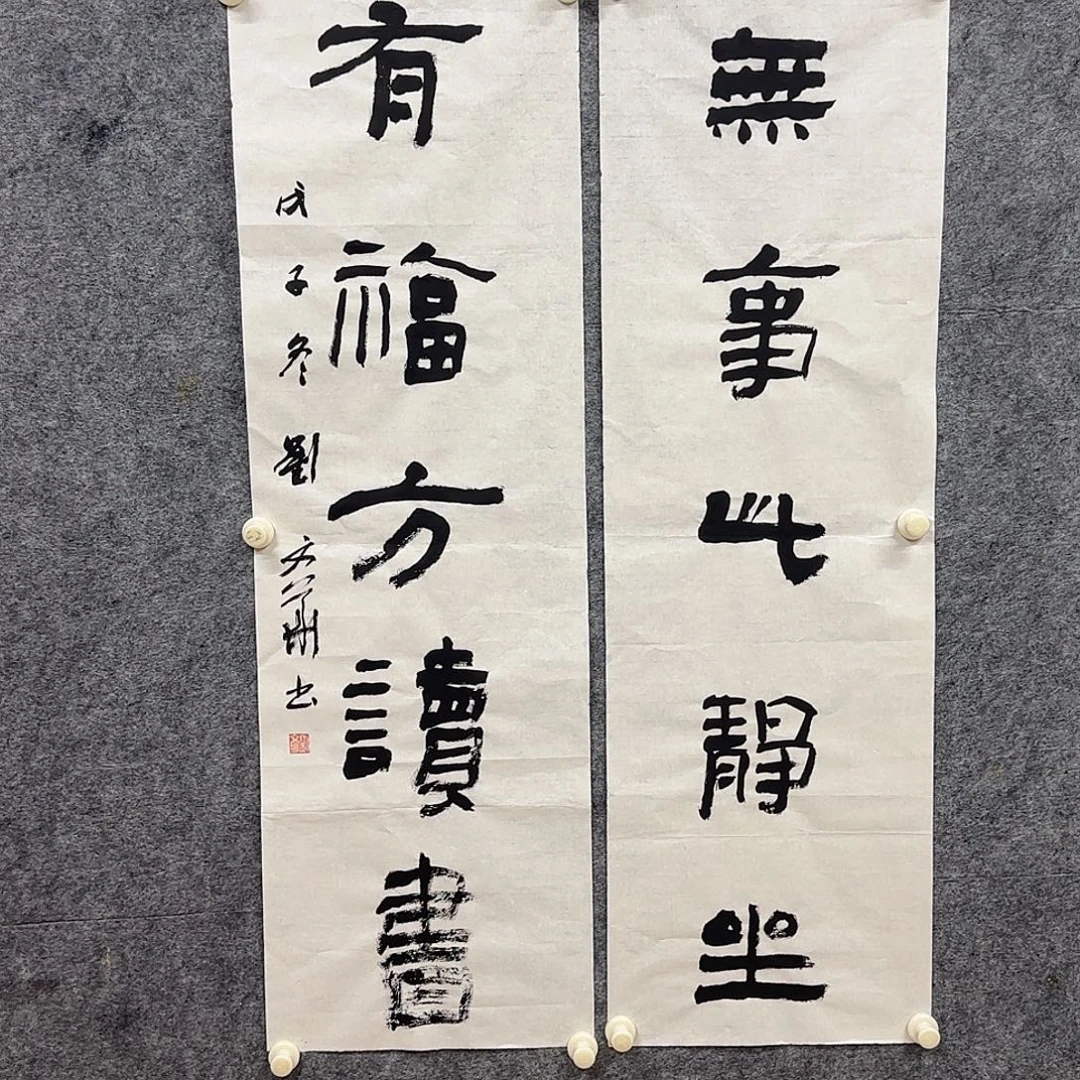 無事此靜坐
有福方讀書
戊子冬劉文華書